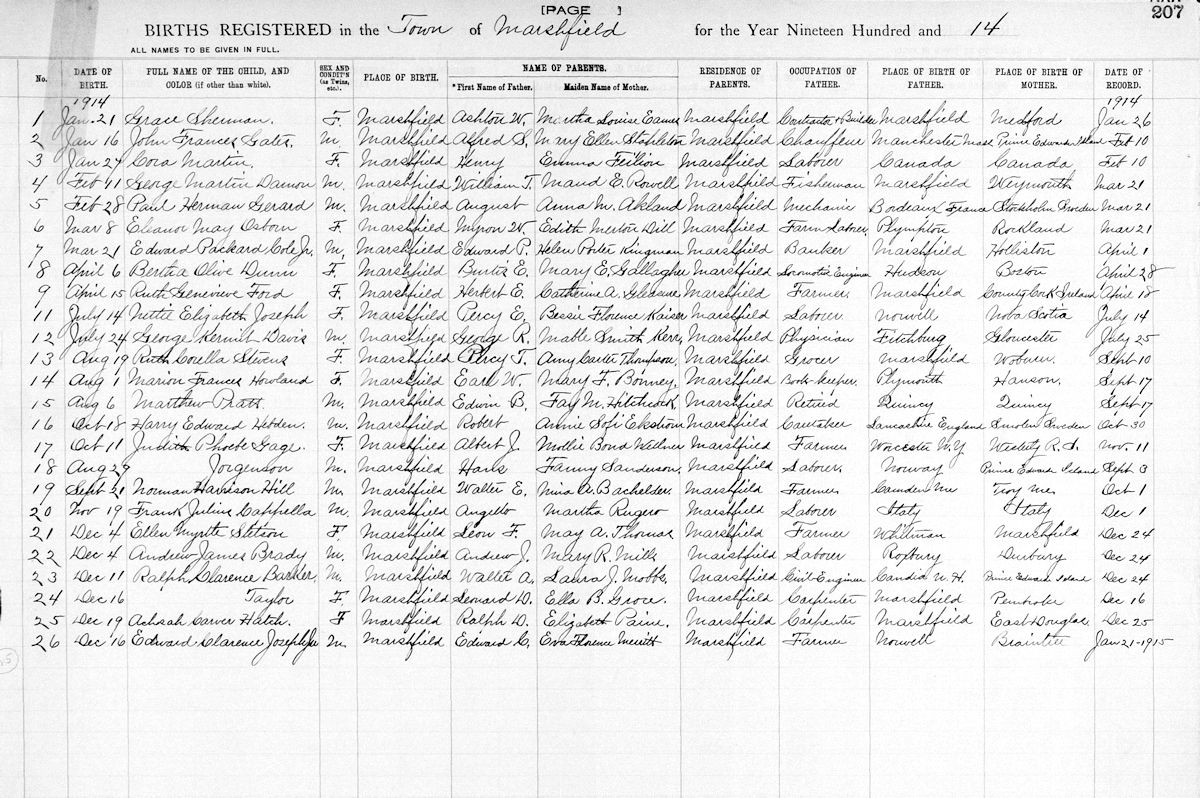 [PAGE ]
207
BIRTHS REGISTERED in the Town of Marshfield for the Year Nineteen Hundred and 14
ALL NAMES TO BE GIVEN IN FULL.
No. DATE OF BIRTH. FULL NAME OF THE CHILD, AND COLOR (if other than white). SEX AND CONDIT'N (as Twins, etc.) PLACE OF BIRTH. NAME OF PARENTS. *First Name of Father. Maiden Name of Mother. RESIDENCE OF PARENTS. OCCUPATION OF FATHER. PLACE OF BIRTH OF FATHER. PLACE OF BIRTH OF MOTHER. DATE OF RECORD.
1914 1914
1 Jan. 21 Grace Sherman. F. Marshfield Ashton W. Martha Louise Eames Marshfield Contractor & Builder Marshfield Medford Jan 26
2 Jan 16 John Frances Gates. M. Marshfield Alfred S. Mary Ellen Stapleton Marshfield Chauffeur Manchester Mass Prince Edward Island Feb 10
3 Jan 24 Cora Martin. F. Marshfield Henry Emma Marshfield Laborer Canada Canada Feb 10
4 Feb 11 George Martin Damon M. Marshfield William T. Maud E. Rowell Marshfield Fisherman Marshfield Weymouth Mar 21
5 Feb 28 Paul Herman Gerard M. Marshfield August Anna M. Akland Marshfield Mechanic Bordeaux France Stockholm Sweden Mar 21
6 Mar 8 Eleanor May Osborn F. Marshfield Myron W. Edith Merton Dill Marshfield Farm Laborer Plympton Rockland Mar 21
7 Mar 21 Edward Packard Cole Jr. M. Marshfield Edward P. Helen Porter Kingman Marshfield Banker Marshfield Holliston April 1
8 April 6 Bertha Olive Dunn F. Marshfield Burtis E. Mary E. Gallagher Marshfield Locomotive Engineer Hudson Boston April 28
9 April 15 Ruth Genevieve Ford F. Marshfield Herbert E. Catherine A. Gleasure Marshfield Farmer. Marshfield County Cork Ireland April 18
11 July 14 Nettie Elizabeth Joseph F. Marshfield Percy E. Bessie Florence Kaiser Marshfield Laborer Norwell Nova Scotia July 14
12 July 24 George Kermit Davis M. Marshfield George R. Mable Smith Kerr Marshfield Physician Fitchburg Gloucester July 25
13 Aug 19 Ruth Corella Stevens F. Marshfield Percy T. Amy Carter Thompson. Marshfield Grocer Marshfield Woburn. Sept 10
14 Aug 1 Marion Frances Howland F. Marshfield Earl W. Mary F. Bonney. Marshfield Book-keeper. Plymouth Hanson. Sept 17
15 Aug 6 Matthew Pratt M. Marshfield Edwin B. Fay M. Hitchcock. Marshfield Retired Quincy Quincy Sept 17
16 Oct 18 Harry Edward Hebden. M. Marshfield Robert Annie Sofi Ekstrom Marshfield Caretaker Lancashire England Sweden Oct 30
17 Oct 11 Judith Phoebe Gage. F. Marshfield Albert J. Mollie Bond Marshfield Farmer Worcester N.Y Westerly R.I. Nov. 11
18 Aug 29 Jorgenson M. Marshfield Hans Fanny Sanderson. Marshfield Laborer. Norway Prince Edward Island Sept 3
19 Sept 21 Norman Harrison Hill M. Marshfield Walter E. Nina A. Bachelder. Marshfield Farmer Camden Me Troy Me. Oct 1
20 Nov 19 Frank Julius Cappella M. Marshfield Angelo Martha Rugero Marshfield Laborer Italy Italy Dec 1
21 Dec 4 Ellen Myrtle Stetson F. Marshfield Leon F. May A. Thomas Marshfield Farmer Whitman Marshfield Dec 24
22 Dec 4 Andrew James Brady M. Marshfield Andrew J. Mary R. Mills Marshfield Laborer Roxbury Duxbury Dec 24
23 Dec 11 Ralph Clarence Barker. M. Marshfield Walter A. Laura J. Mobbs. Marshfield Civil Engineer Candia N.H. Prince Edward Island Dec 24
24 Dec 16 Taylor F Marshfield Leonard D. Ella B. Grose. Marshfield Carpenter Marshfield Pembroke Dec 16
25 Dec 19 Achsah Carver Hatch. F Marshfield Ralph D. Elizabeth Paine. Marshfield Carpenter Marshfield East Douglas Dec 25
26 Dec 16 Edward Clarence Joseph Jr M. Marshfield Edward C. Eva Florence Merritt Marshfield Farmer Norwell Braintree Jan 21-1915